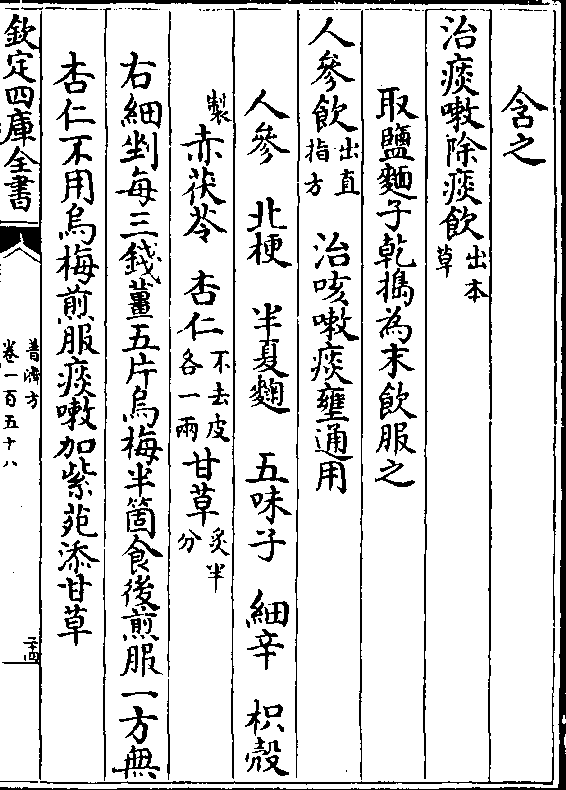 含之
治痰嗽除痰飲出本草
取鹽麵子乾搗為末飲服之
人參飲出直指方 治咳嗽痰壅通用
人參 北梗 半夏麴 五味子 細辛 枳殼
製 赤茯苓 杏仁不去皮各一兩 甘草炙半分
右細剉每三錢薑五片烏梅半箇食後煎服一方無
杏仁不用烏梅煎服痰嗽加紫苑添甘草
欽定四庫全書
普濟方
卷一百五十八
二十四